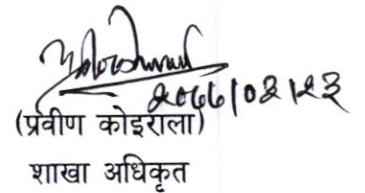 २०७७।०३।२३
(प्रवीण कोइराला)
शाखा अधिकृत